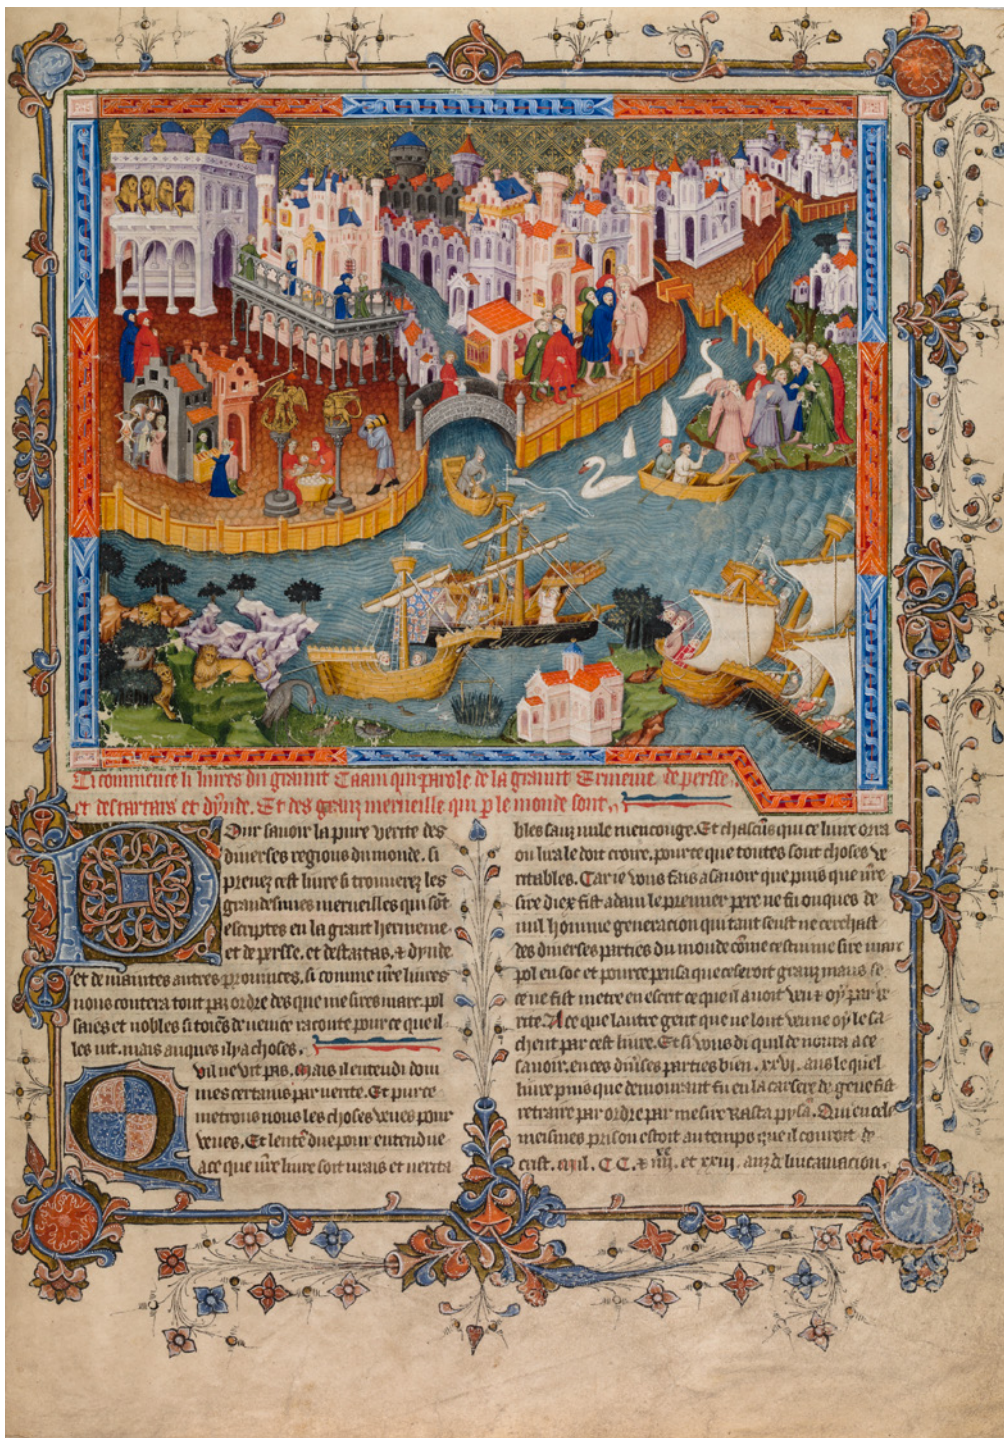 Ci commence li livres du graunt Caam qui parole de la graunt Ermenie de persse.
et des tartars et dynde. Et des granz merveille qui p le monde sont.
Pour savoir la pure verite des
diverses regions du monde. si
prenez cest livre si trouverez les
grandesimes merveilles qui sõt
escriptes en la grant hermenie.
et de persse. et des tartars. & dynde
et de maintes autres provinces. si comme nr̃e livres
nous contera tout par ordre des que me sires marc pol
saies et nobles citoiẽs de venice raconte pour ce que il
les vit. mais auques il y a choses.
Quil ne vit pas. Mais il entendi dom
mes certains par verite. Et pur ce
metrons nous les choses veues pour
veues. Et lentẽdue pour entendue
a ce que nr̃e livre soit vrais et verita
bles sanz nule mencouge. Et chascũs qui ce livre orra
ou lira le doit croire. pour ce que toutes sont choses ve
ritables. Car ie vous fais a savoir que puis que nr̃e
sire diex fist adam le premier pere ne fu onques de
nul homme generacion qui tant seust ne cerchast
des diverses parties du monde cõme cestui me sire marc
pol en soc et pour ce pensa que ce seroit granz maus se
ce ne fist metre en escrit ce que il avoit veu & oÿ par ve
rite. A ce que lautre gent que ne lont veu ne oÿ le sa
chent par cest livre. Et si vous di quil demoura a ce
savoir en ces div̾ses parties bien .xxvi. ans le quel
livre puis que demourant fu en la carsere de gene fist
retraire par ordre par mesire Rasta pysã. Qui en cele
meismes prison estoit au temps que il couroit de
crist. Mil. C C. & iiii. et xviii. anz de lincarnacion.